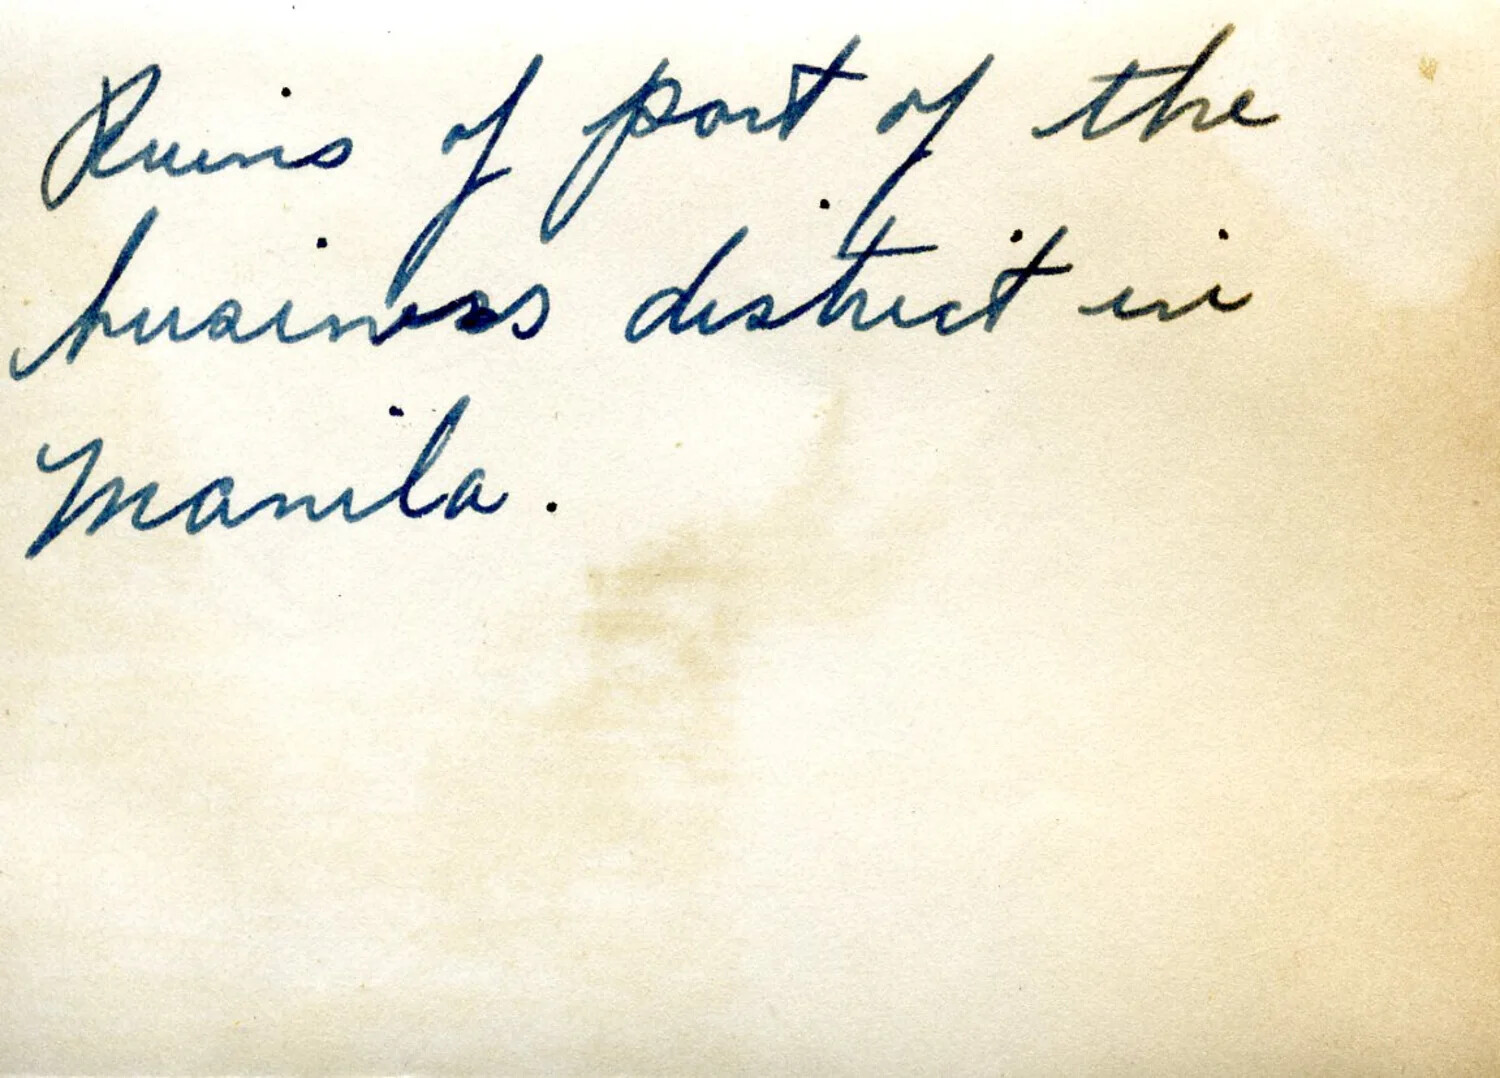 Ruins of part of the
business district in
Manila.